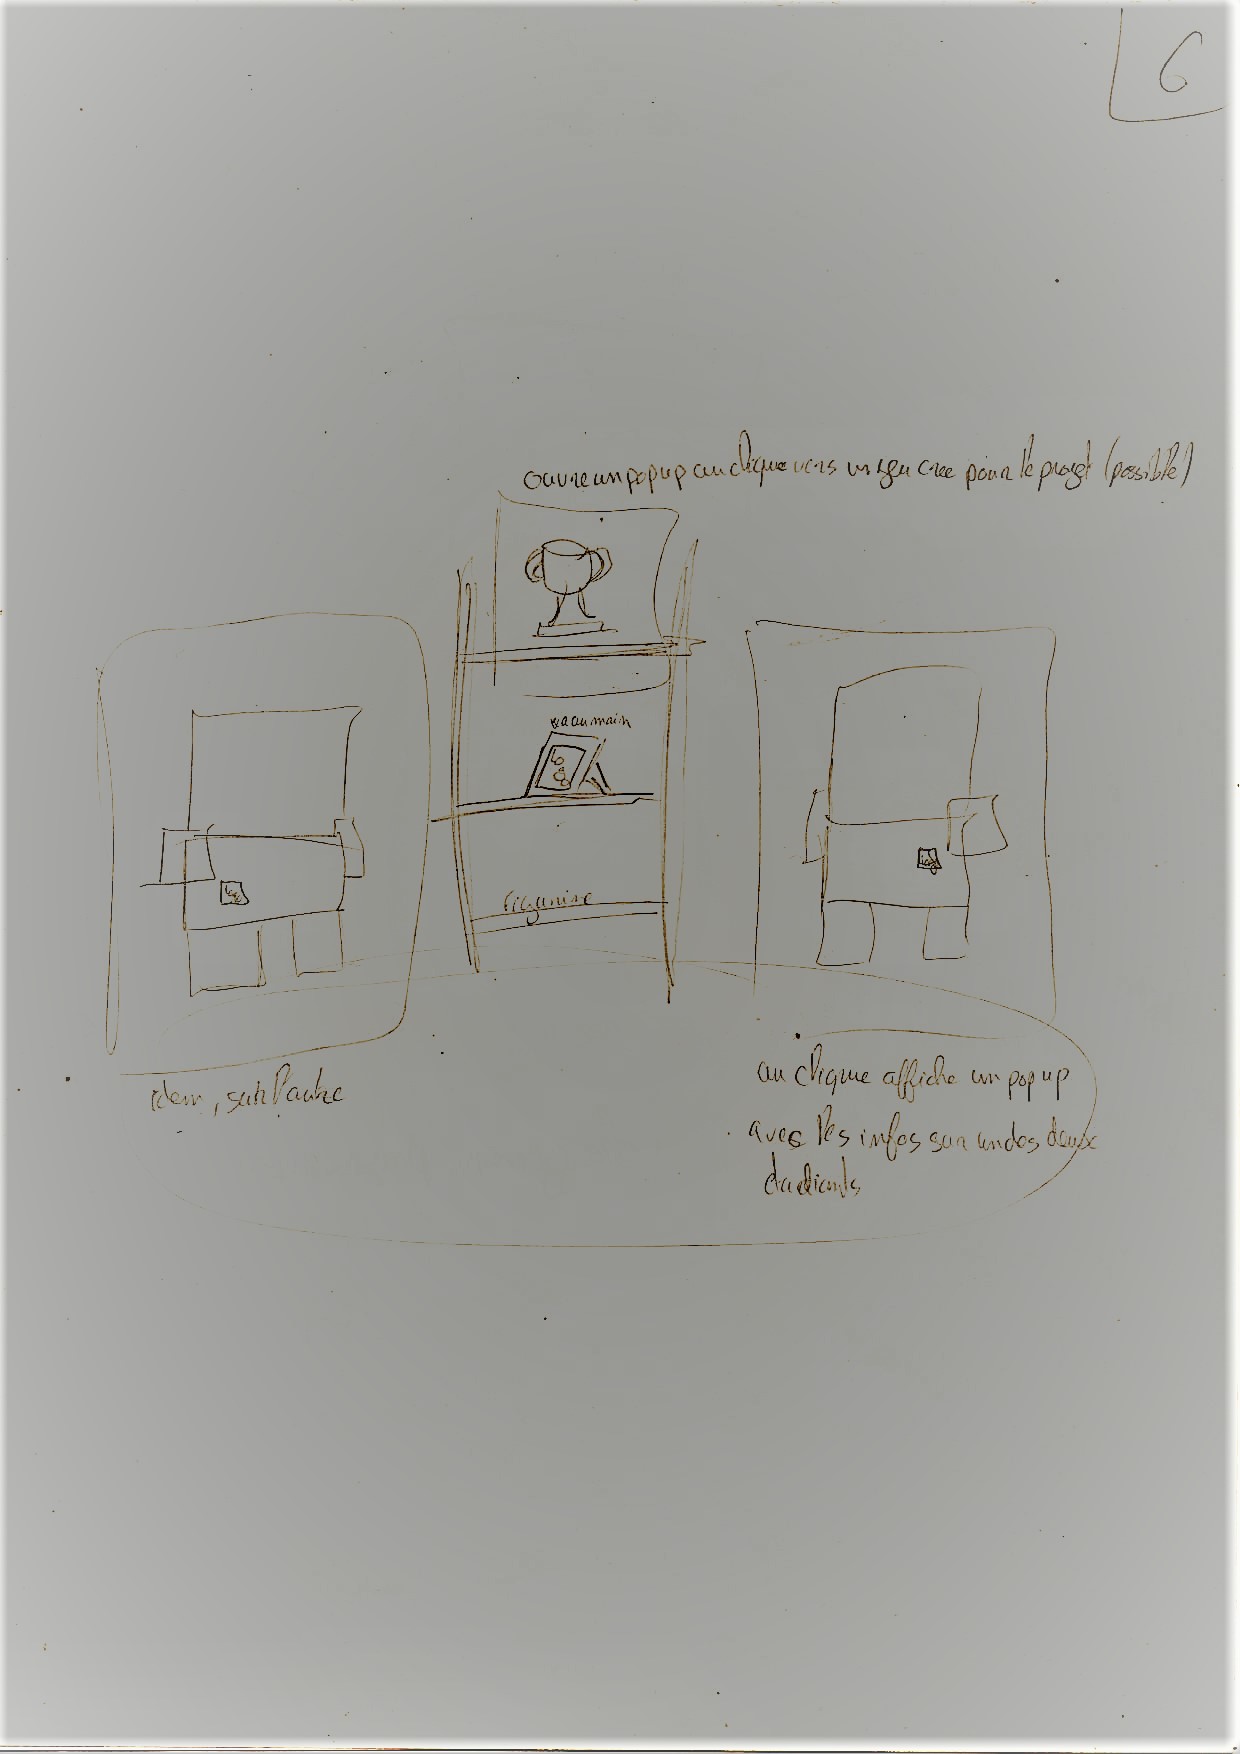 6
ouvre un popup au clique vers un jeu cree pour le projet (possible)
main
logo
logo
idem, sur l'autre
au clique affiche un popup
avec les infos sur un des deux
étudiants